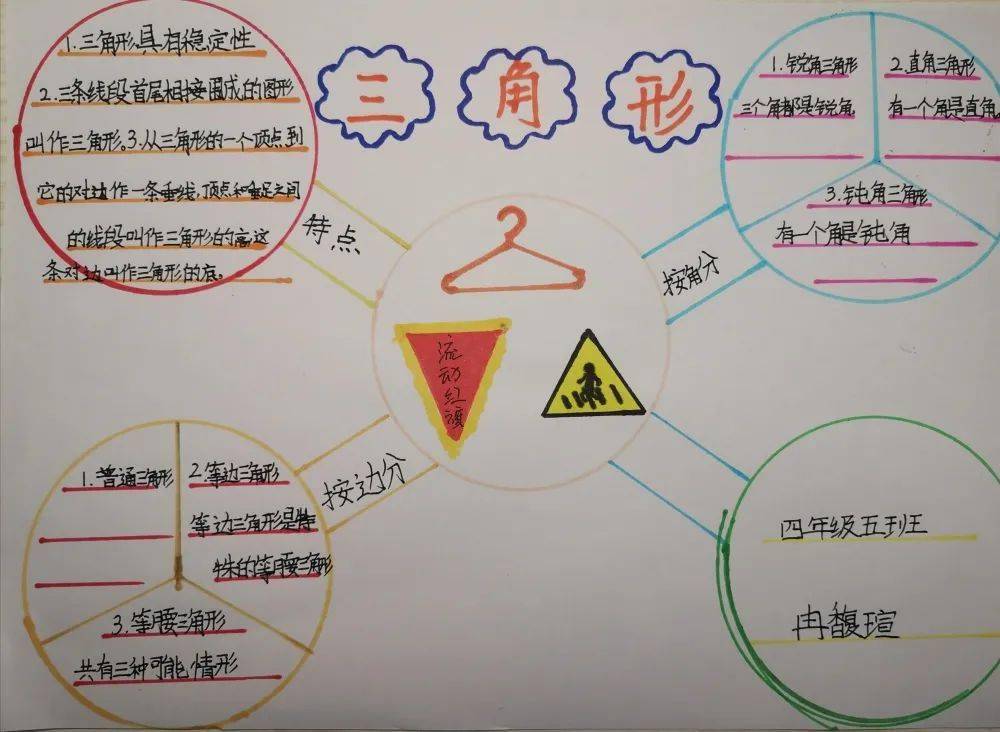 三角形
1.三角形具有稳定性
2.三条线段首尾相接围成的图形
叫作三角形。3.从三角形的一个顶点到
它的对边作一条垂线,顶点和垂足之间
的线段叫作三角形的高,这
条对边叫作三角形的底。
特点
1.锐角三角形
三个角都是锐角
2.直角三角形
有一个角是直角
3.钝角三角形
有一个角是钝角
按角分
流动红旗
按边分
1.普通三角形
2.等边三角形
等边三角形是特
殊的等腰三角形
3.等腰三角形
共有三种可能情形
四年级五班王
冉馥瑄